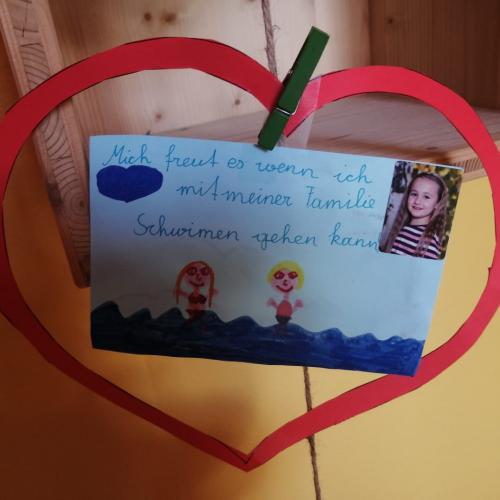 Mich freut es wenn ich
mit meiner Familie
Schwimen gehen kann